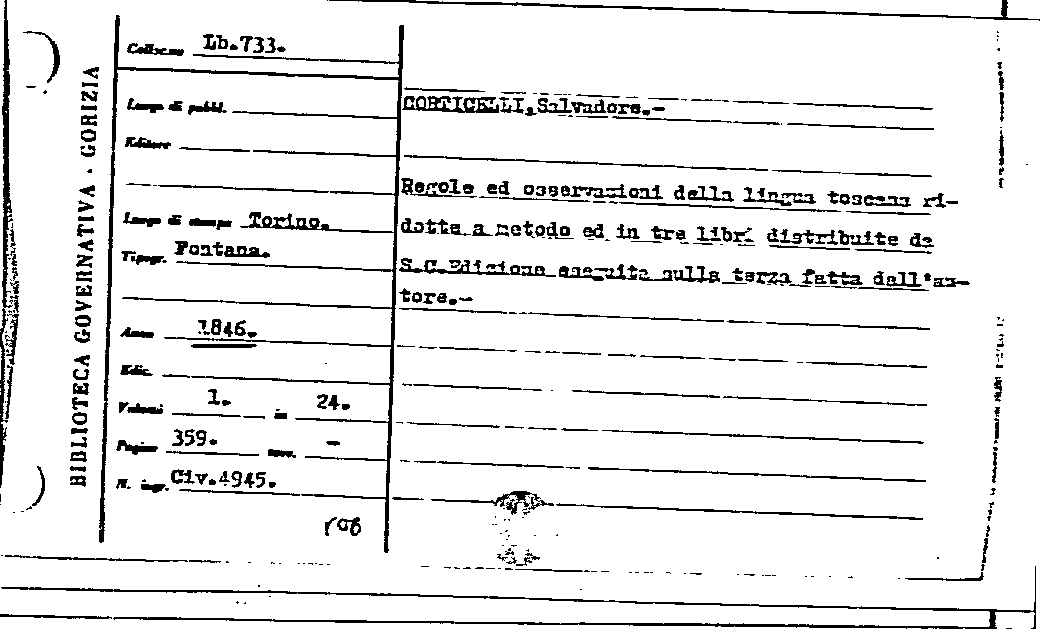 BIBLIOTECA GOVERNATIVA · GORIZIA
Collocaz. Lb.733.
Luogo di pubbl.
Editore
Luogo di stampa Torino.
Tipogr. Fontana.
Anno 1846.
Ediz.
Volumi 1. in 24.
Pagine 359. tavv. -
N. ingr. Civ.4945.
CORTICELLI,Salvadore.-
Regole ed osservazioni della lingua toscana ri-
dotte a metodo ed in tre libri distribuite da
S.C.Edizione eseguita sulla terza fatta dall'au-
tore.-